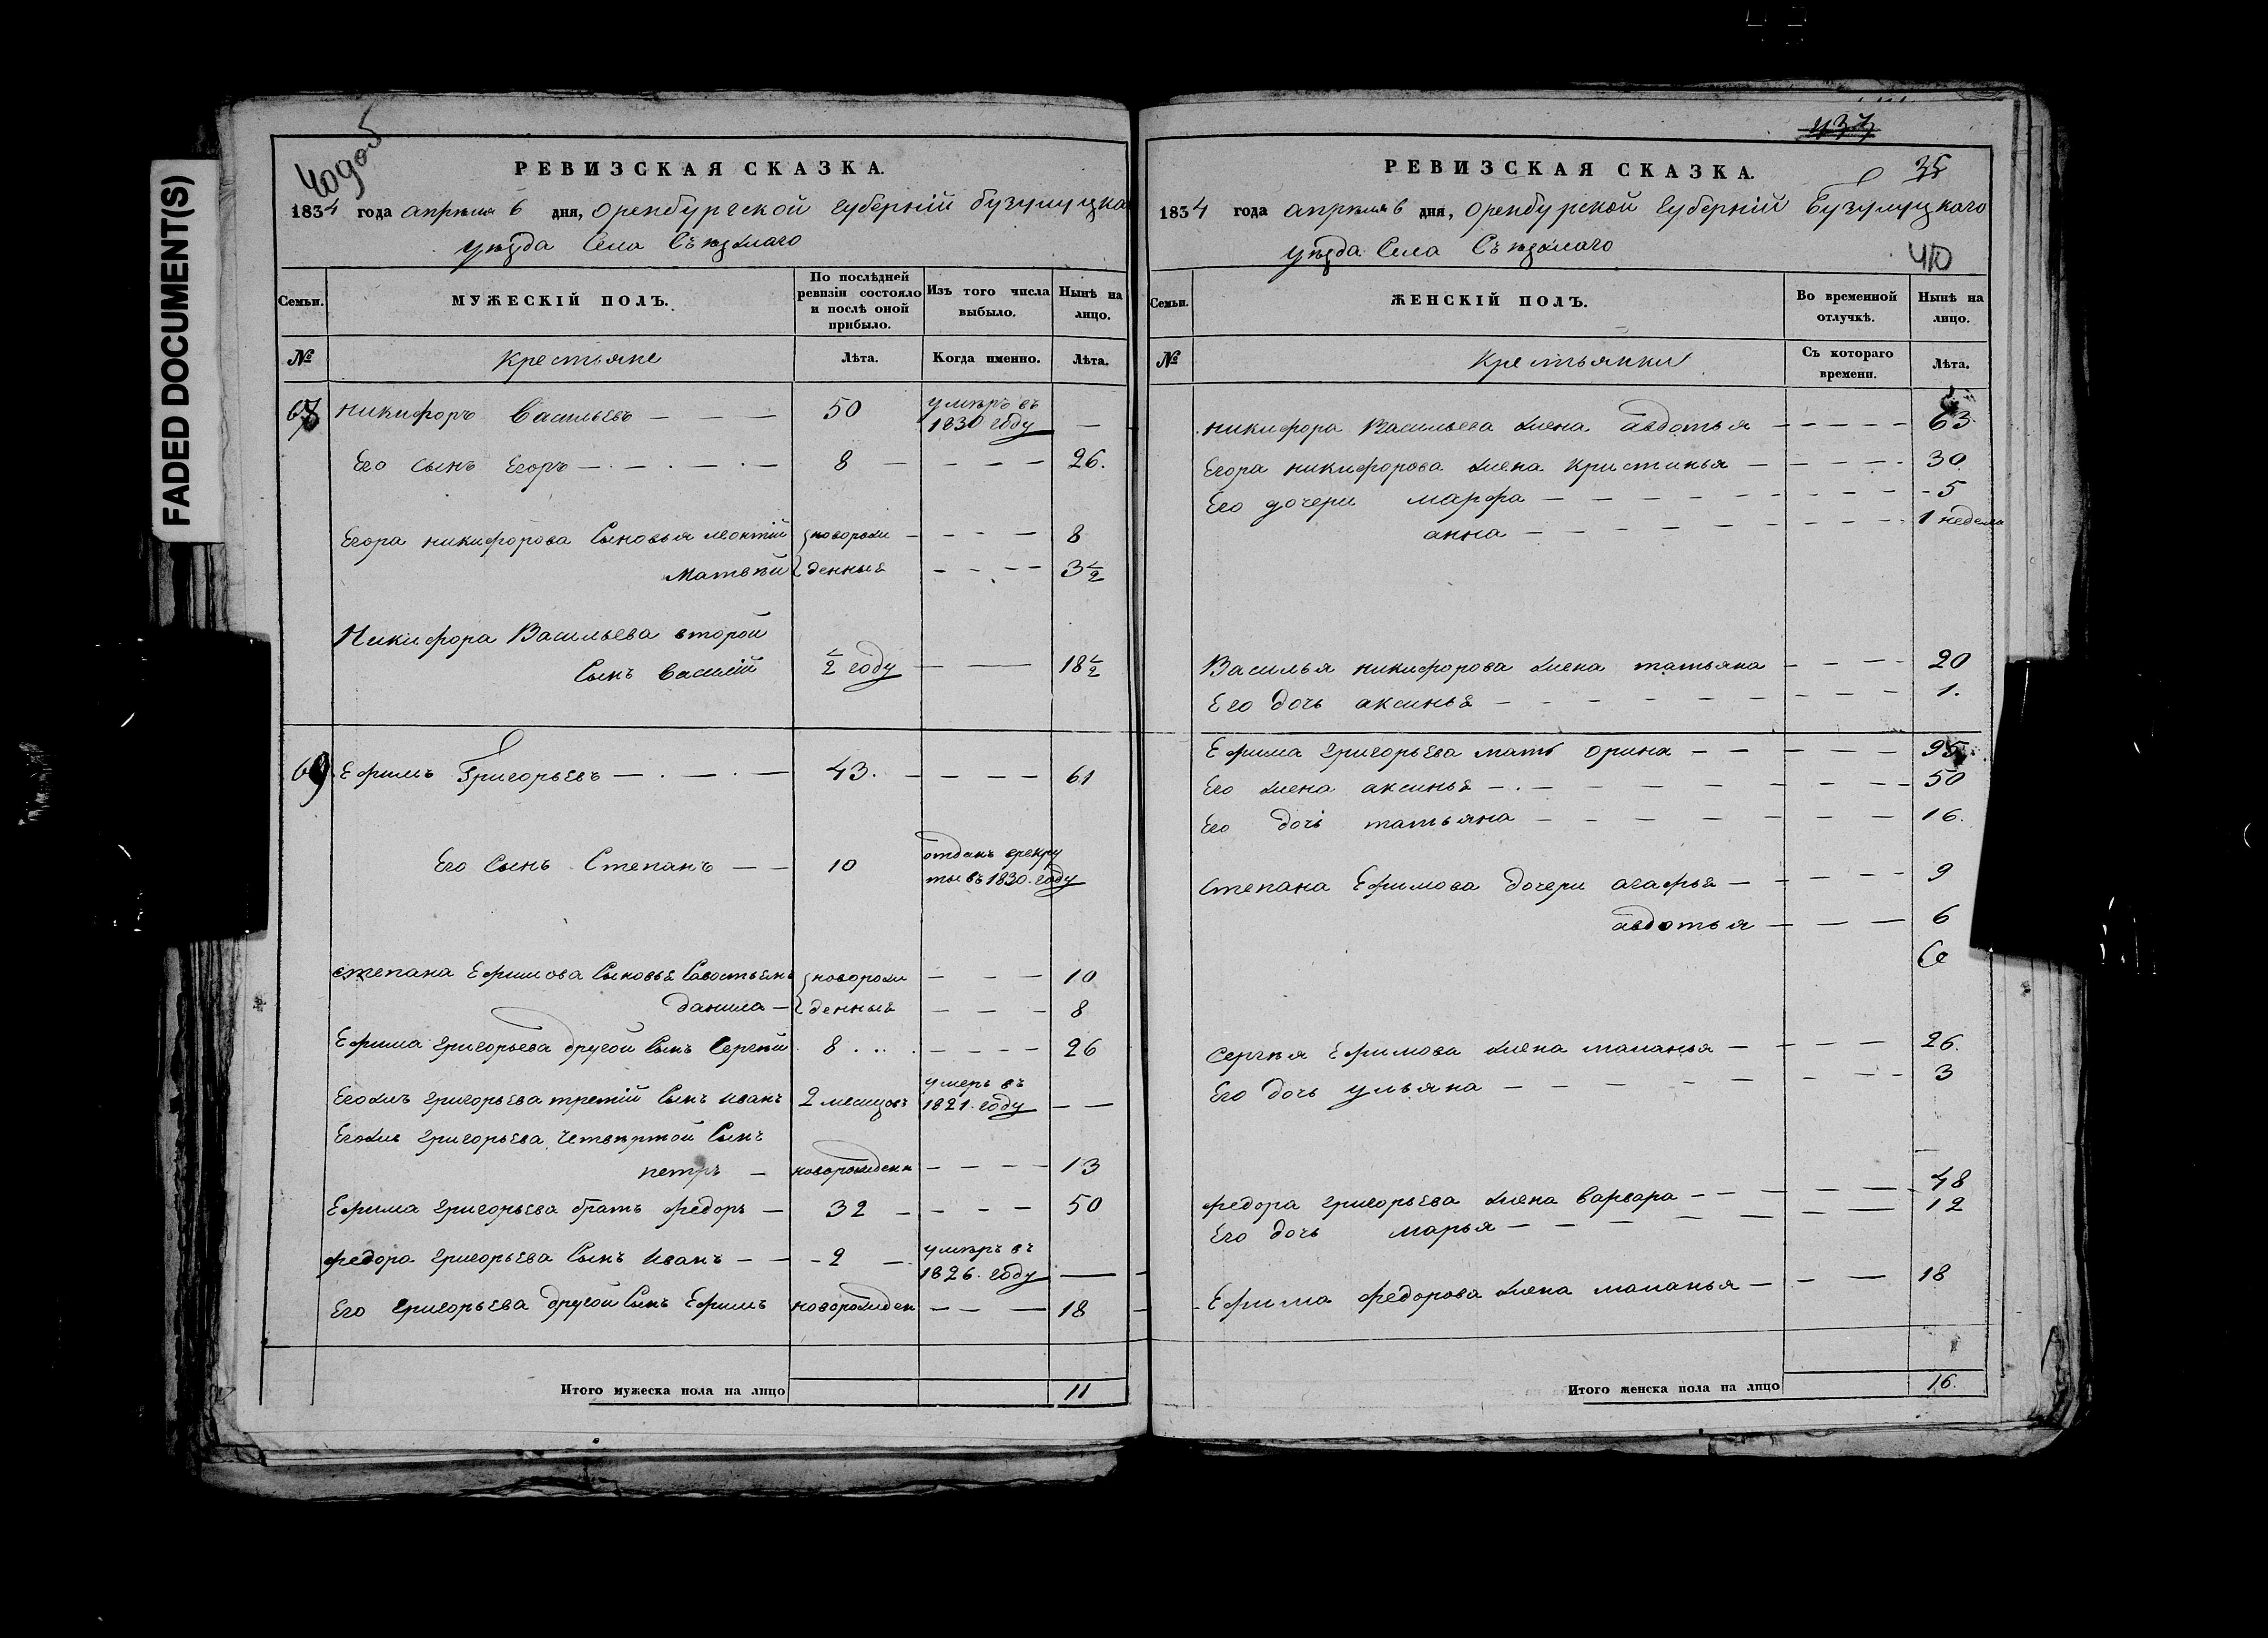 FADED DOCUMENT(S)
РЕВИЗСКАЯ СКАЗКА.
1834 года апреля 6 дня, Оренбургской Губерніи бузулуцка
уѣзда Села Съѣзжаго
Семьи.
МУЖЕСКІЙ ПОЛЪ.
По послѣдней ревизіи состояло и послѣ оной прибыло.
Изъ того числа выбыло.
Нынѣ на лицо.
№ Крестьяне Лѣта. Когда именно. Лѣта.
никифоръ Васильевъ — — — 50 умѣръ въ
1830 году —
Его сынъ Егоръ — . — . — . — 8 — — — — 26.
Егора никифорова Сыновья леонтій новорож — — — — 8
Матвѣй денные — — — — 3½
Никифора Васильева второй
Сынъ Василій ½ году — — 18½
Ефимъ Григорьевъ — . — . — 43. — — — — 61
Его Сынъ Степанъ — — 10 отданъ врекру
ты въ 1830. году
степана Ефимова Сыновьа Савостьянъ новорож — — — 10
данила — денныа — — — 8
Ефима григорьева другой Сынъ Сергѣй 8 . .. . — — — — 26
Егожъ григорьева третій Сынъ иванъ 2 месяцовъ умеръ въ
1821. году — —
Егожъ григорьева четвертой Сынъ
петръ — новорожденн — — — — 13
Ефима григорьева братъ федоръ — 32 — — — — 50
федора григорьева Сынъ иванъ — — - 2 — умѣръ въ
1826. году —
Его григорьева другой Сынъ Ефимъ новорожден — — — 18
Итого мужеска пола на лицо 11
35
РЕВИЗСКАЯ СКАЗКА.
1834 года апреля 6 дня, Оренбурской Губерніи Бузулуцкаго
уѣзда Села Съѣзжаго
Семьи.
ЖЕНСКІЙ ПОЛЪ.
Во временной отлучкѣ.
Нынѣ на лицо.
№ Крестьянки Съ котораго времени. Лѣта.
никифора Васильева жена авдотья — — — — — 63
Егора никифорова жена кристинья — — — — 30
Его дочери марфа — — — — — — — — — 5
анна — — — — — — — — — 1 неделя
Василья никифорова жена татьяна — — — — 20
Его дочь аксинья — — — — — — — — 1.
Ефима григорьева мать орина — — — — — 95
Его жена аксинья — . — — — — — — — — 50
Его дочь татьяна — — — — — — — — 16.
Степана Ефимова дочери агафья — — — — — 9
авдотья — — — — 6
Сергѣя Ефимова жена маланья — — — — — 26.
Его дочь ульяна — — — — — — — — — 3
федора григорьева жена варвара — — — — — — 48
Его дочь марья — — — — — — — — 12
Ефима федорова жена маланья — — — 18
Итого женска пола на лицо 16.